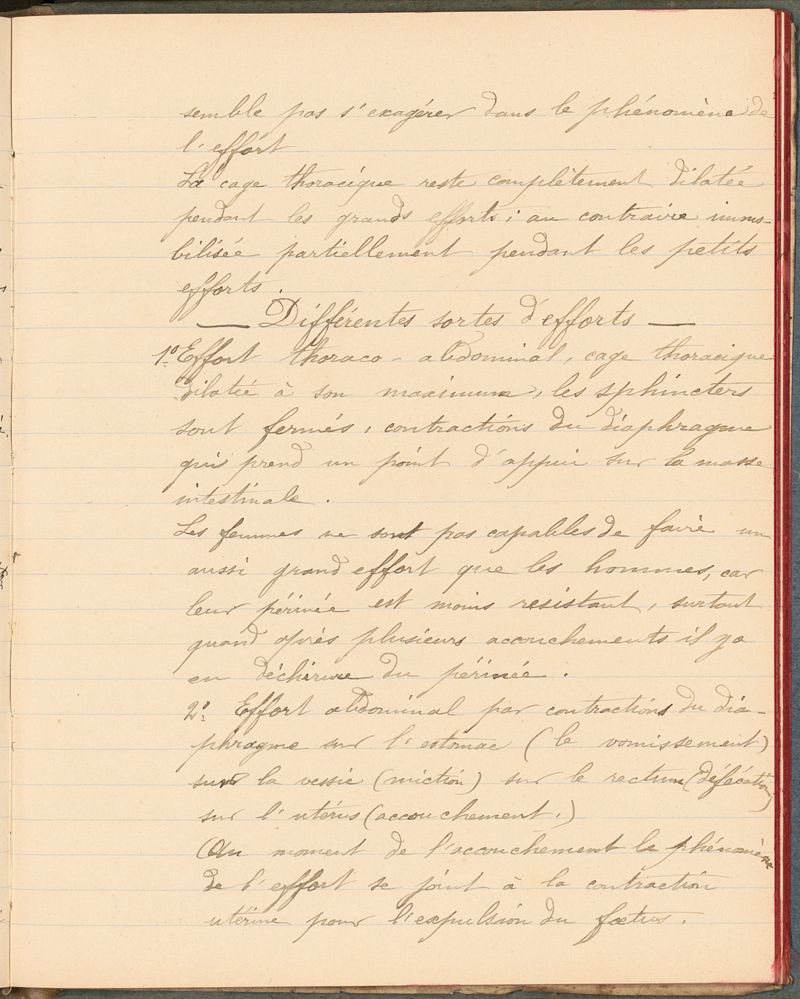 semble pas s'exagérer dans le phénomène de
l'effort
La cage thoracique reste complètement dilatée
pendant les grands efforts; au contraire immo-
bilisée partiellement pendant les petits
efforts.
— Différentes sortes d'efforts —
1º Effort thoraco-abdominal, cage thoracique
dilatée à son maximum, les sphincters
sont fermés, contractions du diaphragme
qui prend un point d'appui sur la masse
intestinale.
Les femmes ne sont pas capables de faire un
aussi grand effort que les hommes, car
leur périnée est moins resistant, surtout
quand après plusieurs accouchements il ya
eu déchirure du périnée.
2º. Effort abdominal par contractions du dia-
phragme sur l'estomac (le vomissement)
sur la vessie (miction) sur le rectum (défécation)
sur l'utérus (accouchement.)
(Au moment de l'accouchement le phénomène
de l'effort se joint à la contraction
utérine pour l'expulsion du fœtus.